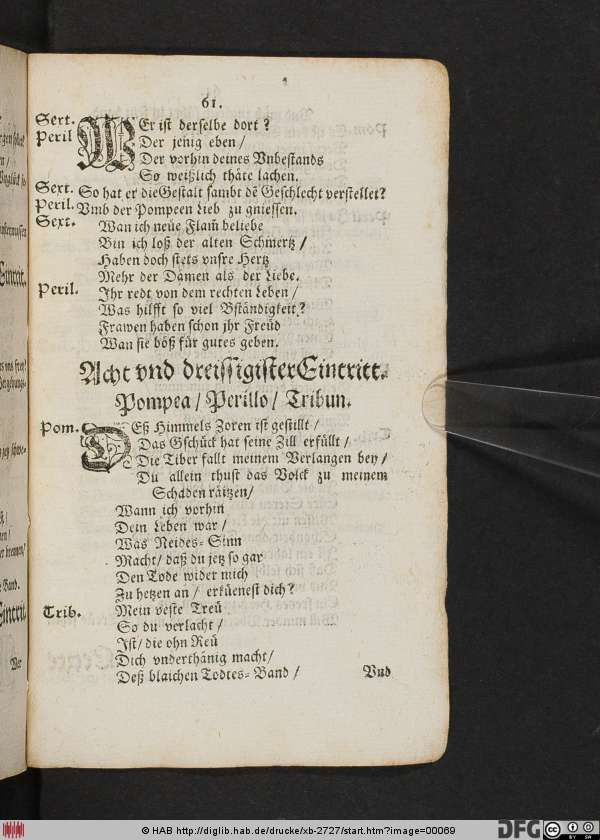 61.
Sert. WEr ist derselbe dort?
Peril Der jenig eben/
Der vorhin deines Vnbestands
So weißlich thäte lachen.
Sext. So hat er die Gestalt sambt dẽ Geschlecht verstellet?
Peril. Vmb der Pompeen Lieb zu gniessen.
Sext. Wan ich neüe Flam̃ beliebe
Bin ich loß der alten Schmertz/
Haben doch stets vnsre Hertz
Mehr der Damen als der Liebe.
Peril. Ihr redt von dem rechten Leben/
Was hilfft so viel Bständigkeit?
Frawen haben schon jhr Freüd
Wan sie böß für gutes geben.
Acht vnd dreissigister Eintritt.
Pompea/ Perillo/ Tribun.
Pom. DEß Himmels Zoren ist gestillt/
Das Gschück hat seine Zill erfüllt/
Die Tiber fallt meinem Verlangen bey/
Du allein thust das Volck zu meinem
Schaden räitzen/
Wann ich vorhin
Dein Leben war/
Was Neides-Sinn
Macht/ daß du jetz so gar
Den Tode wider mich
Zu hetzen an/ erküenest dich?
Trib. Mein veste Treü
So du verlacht/
Ist/ die ohn Reü
Dich vnderthänig macht/
Deß blaichen Todtes-Band/
Vnd
© HAB http://diglib.hab.de/drucke/xb-2727/start.htm?image=00069
DFG
CC BY SA